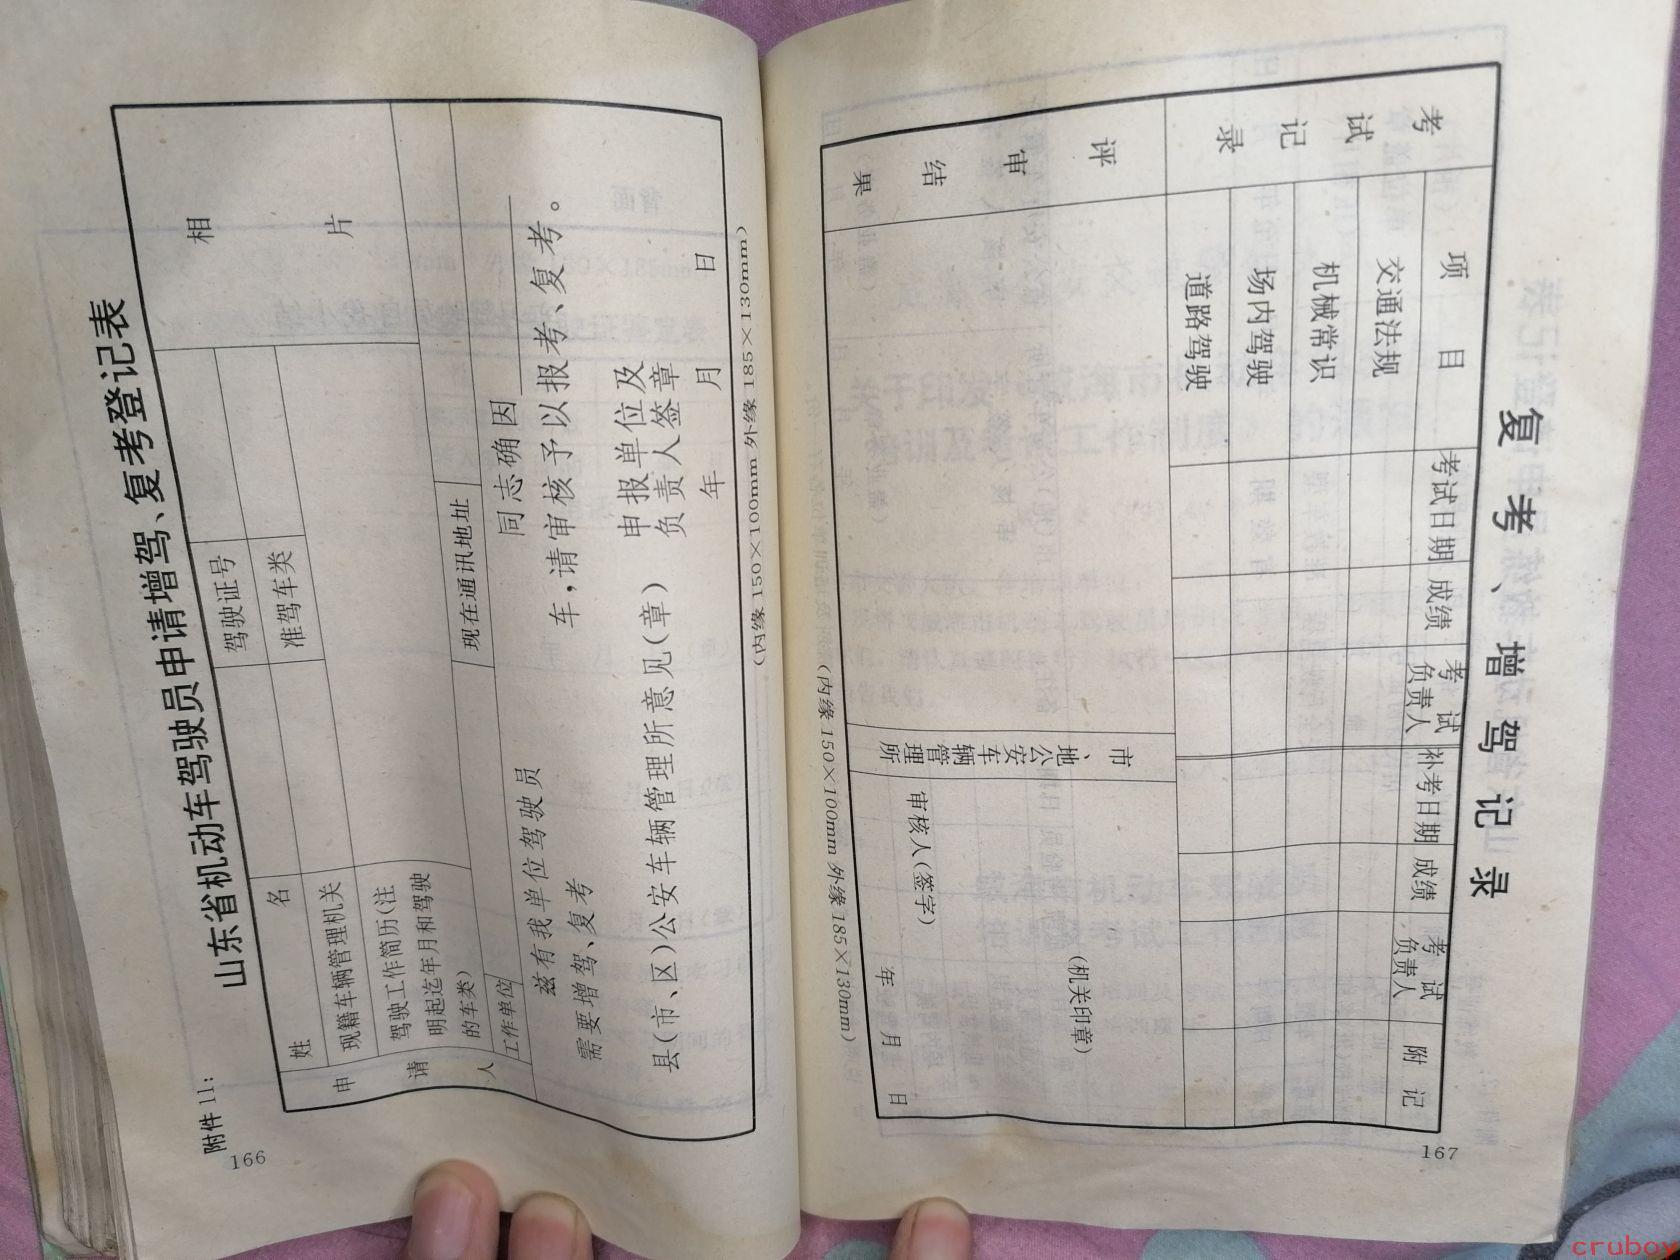 附件 11:
山东省机动车驾驶员申请增驾、复考登记表
申请人
姓名
驾驶证号
相片
现籍车辆管理机关
准驾车类
驾驶工作简历(注
明起迄年月和驾驶
的车类)
工作单位
现在通讯地址
兹有我单位驾驶员 同志确因
需要增驾、复考 车,请审核予以报考、复考。
申报单位及
负责人签章
县(市、区)公安车辆管理所意见(章)
年 月 日
(内缘 150×100mm 外缘 185×130mm)
166
复考、增驾记录
考试记录
项目
考试日期
成绩
考试
负责人
补考日期
成绩
考试
负责人
附记
交通法规
机械常识
场内驾驶
道路驾驶
评审结果
市、地公安车辆管理所
(机关印章)
审核人(签字)
年 月 日
(内缘 150×100mm 外缘 185×130mm)
167
cruboy